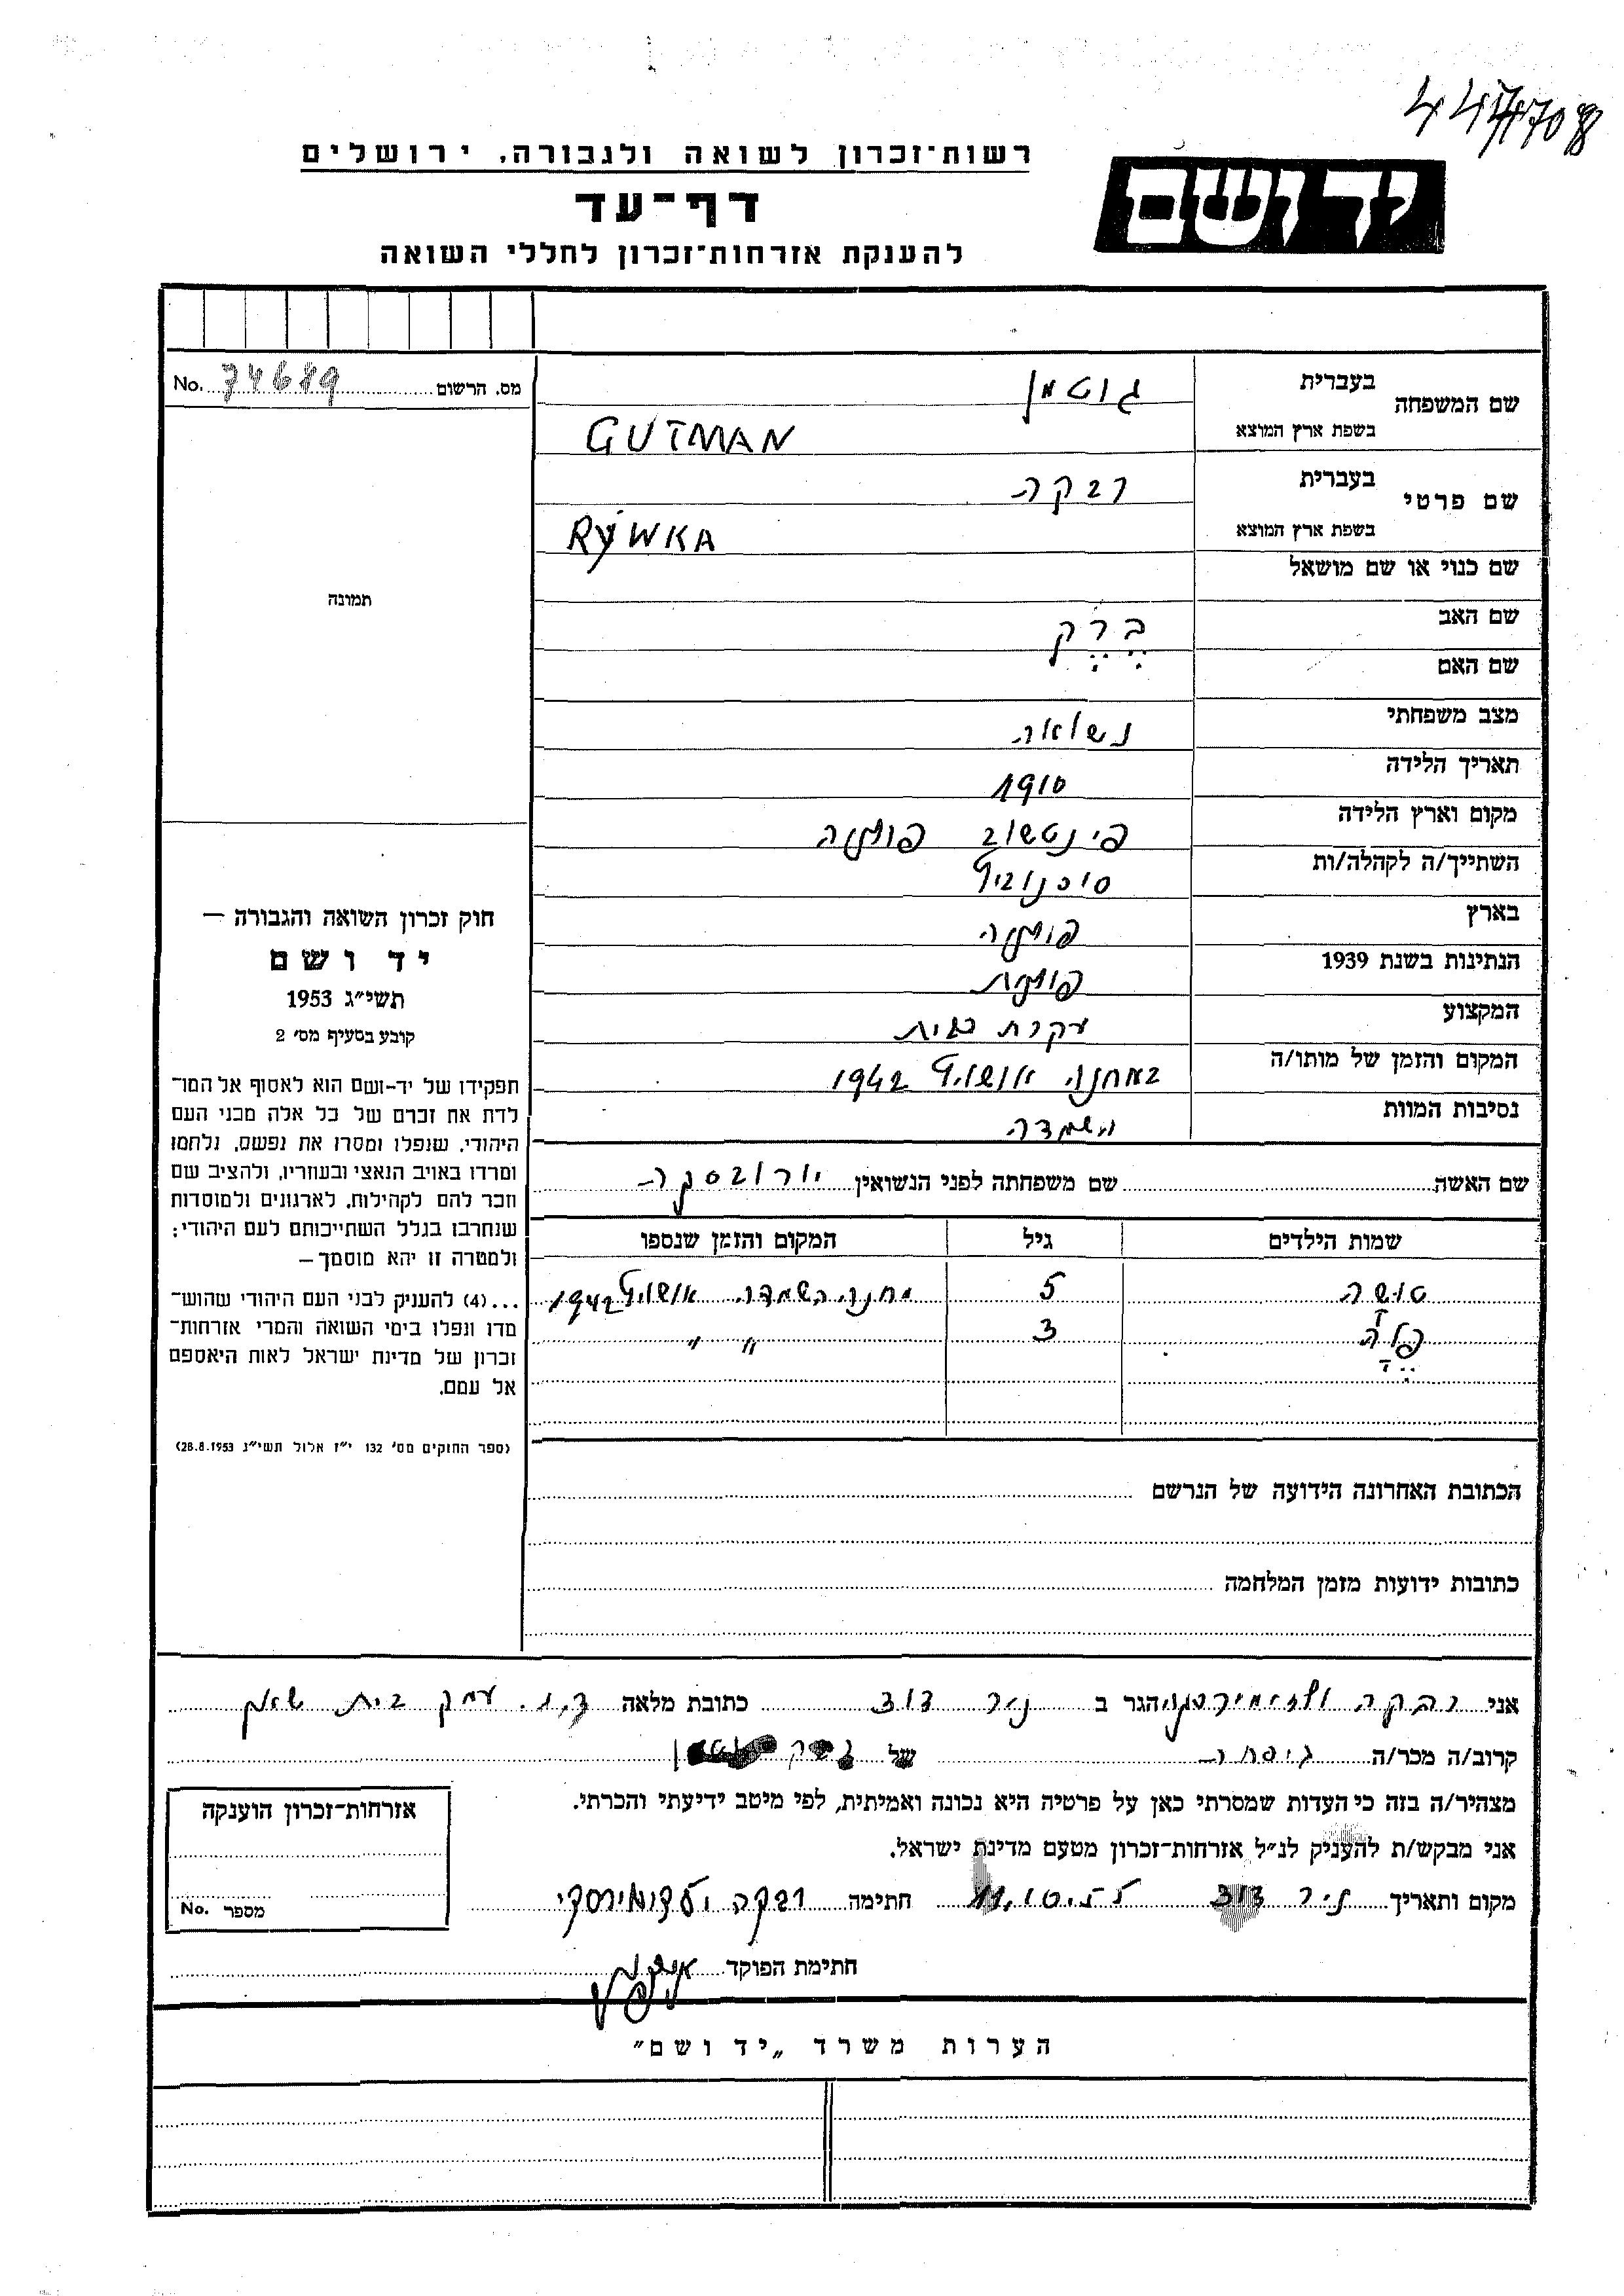 רשות־זכרון לשואה ולגבורה, ירושלים
יד ושם
דף־עד
להענקת אזרחות־זכרון לחללי השואה
מס. הרשום 74689 No.
שם המשפחה
בעברית גוטמן
בשפת ארץ המוצא GUTMAN
שם פרטי
בעברית רבקה
בשפת ארץ המוצא RYWKA
שם כנוי או שם מושאל
שם האב בֶּרֶק
שם האם
מצב משפחתי נשואה
תאריך הלידה 1910
מקום וארץ הלידה פינטשוב פולניה
השתייך/ה לקהלה/ות סוסנוביץ
בארץ פולניה
הנתינות בשנת 1939 פולנית
המקצוע עקרת בית
המקום והזמן של מותו/ה במחנה אושויץ 1942
נסיבות המוות השמדה
שם האשה שם משפחתה לפני הנשואין
שמות הילדים גיל המקום והזמן שנספו
טושה 5 מחנה השמדה אושויץ 1942
3 " "
תמונה
חוק זכרון השואה והגבורה —
יד ושם
תשי״ג 1953
קובע בסעיף מס׳ 2
תפקידו של יד-ושם הוא לאסוף אל המו־
לדת את זכרם של כל אלה מבני העם
היהודי, שנפלו ומסרו את נפשם, נלחמו
ומרדו באויב הנאצי ובעוזריו, ולהציב שם
וזכר להם לקהילות, לארגונים ולמוסדות
שנחרבו בגלל השתייכותם לעם היהודי;
ולמטרה זו יהא מוסמך —
...(4) להעניק לבני העם היהודי שהוש־
מדו ונפלו בימי השואה והמרי אזרחות־
זכרון של מדינת ישראל לאות היאספם
אל עמם.
(ספר החוקים מס׳ 132 י״ז אלול תשי״ג 28.8.1953)
הכתובת האחרונה הידועה של הנרשם
כתובות ידועות מזמן המלחמה
אני רבקה הגר ב ניר דוד כתובת מלאה ד.נ. עמק בית שאן
קרוב/ה מכר/ה גיסה של
מצהיר/ה בזה כי העדות שמסרתי כאן על פרטיה היא נכונה ואמיתית, לפי מיטב ידיעתי והכרתי.
אני מבקש/ת להעניק לנ״ל אזרחות־זכרון מטעם מדינת ישראל.
מקום ותאריך ניר דוד חתימה רבקה
חתימת הפוקד
אזרחות־זכרון הוענקה
מספר No.
הערות משרד „יד ושם"